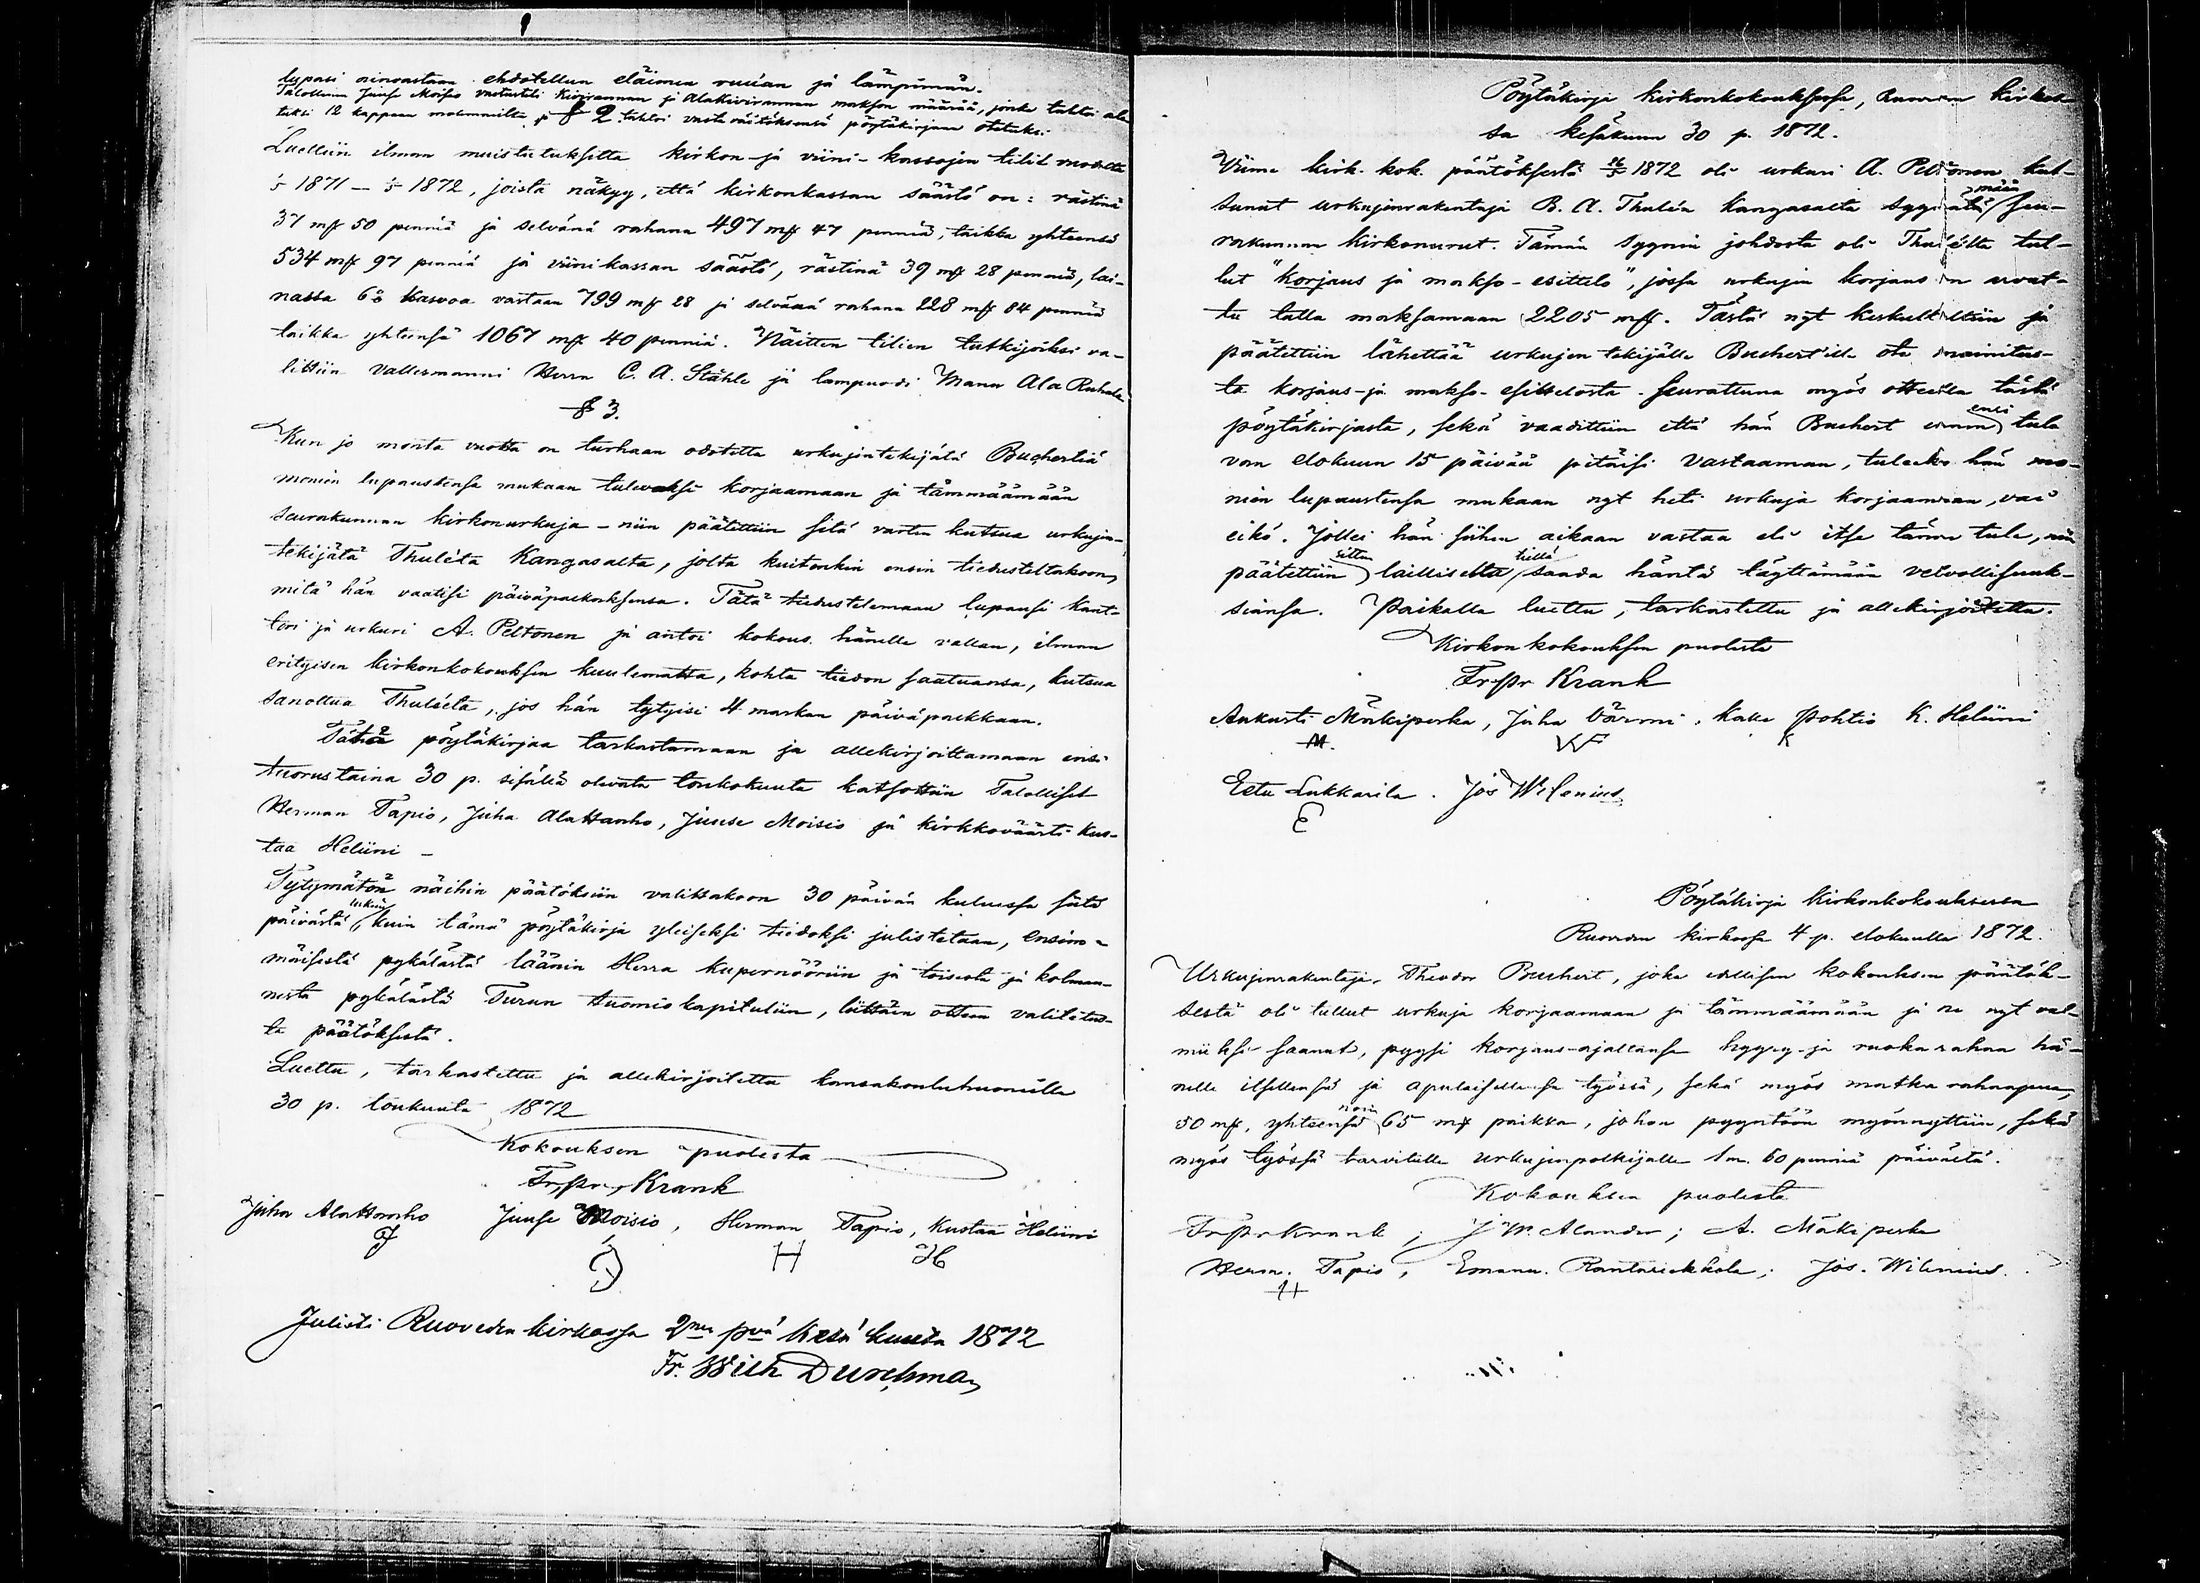 lupasi ainoastaan ehdotellun eläimen ruuan ja lämpimän.
Talollinen Juuse Moisio vastusteli Kivirannan ja Alakivirannan makson määrää, jonka tahtoi ale-
tuksi 12 kappaan molemmilta, ja tahtoi vasta väitöksensä pöytäkirjaan otetuksi.
§ 2.
Luettiin ilman muistutuksitta kirkon- ja viini-kassojen tilit vuodelta
1/5 1871 — 1/5 1872, joista näkyy, että kirkonkassan säästö on: rästinä
37 mk 50 penniä ja selvänä rahana 497 mk 47 penniä, taikka yhteensä
534 mk 97 penniä ja viinikassan säästö, rästinä 39 mk 28 penniä, lai-
nassa 6% kasvoa vastaan 799 mk 28 ja selvänä rahana 228 mk 84 penniä
taikka yhteensä 1067 mk 40 penniä. Näitten tilien tutkijoiksi va-
littiin Vallesmanni Herra C. A. Ståhle ja lampuodi Manu Ala Ruhala
§ 3.
Kun jo monta vuotta on turhaan odotettu urkujentekijätä Buchertiä
monien lupaustensa mukaan tulevaksi korjaamaan ja tämmäämään
Seurakunnan kirkonurkuja – niin päätettiin sitä varten kutsua urkujen-
tekijätä Thuléta Kangasalta, jolta kuitenkin ensin tiedusteltakoon,
mitä hän vaatisi päiväpalkaksensa. Tätä tiedustelemaan lupausi Kant-
tori ja urkuri A. Peltonen ja antoi kokous hänelle vallan, ilman
erityisen kirkonkokouksen kuulematta, kohta tiedon saatuansa, kutsua
sanottua Thuléta, jos hän tytyisi 4 markan päiväpalkkaan.
Tätä pöytäkirjaa tarkastamaan ja allekirjoittamaan ensi
tuorustaina 30 p. sisällä olevata toukokuuta katsottiin Talolliset
Herman Tapio, Juha Alattanho, Juuse Moisio ja kirkkoväärti Kus-
taa Heliini –
Tytymätön näihin päätöksiin valittakoon 30 päivän kuluessa siitä
päivästä lukein, kuin tämä pöytäkirja yleiseksi tiedoksi julistetaan, ensim-
mäisestä pykälästä läänin Herra Kupernööriin ja toisesta ja kolman-
nesta pykälästä Turun tuomiokapituliin, liittäin otteen valitetus-
ta päätöksestä.
Luettu, tarkastettu ja allekirjoitettu kansakouluhuoneilla
30 p. toukuuta 1872
Kokouksen puolesta
Fr. Pr. Krank
Juha Alattanho Juuse Moisio, Herman Tapio, Kustaa Heliini
J H H
Julisti Ruoveden kirkossa 2na pvä kesä kuuta 1872
Fr. Wilh Durchman
Pöytäkirja kirkonkokouksessa, Ruoveden kirkos-
sa kesäkuun 30 p. 1872.
Viime kirk. kok. päätöksestä 26/5 1872 oli urkuri A. Peltonen kut-
sunut urkujenrakentaja B. A. Thulé'a Kangasalta syynäämään seu-
rakunnan kirkonurut. Tämän syynin johdosta oli Thulélta tul-
lut "korjaus ja makso-esittelo", jossa urkujen korjaus on arvat-
tu tulla maksamaan 2205 mk. Tästä nyt keskusteltiin ja
päätettiin lähettää urkujen tekijälle Buchert'ille ote mainitus-
ta korjaus- ja makso-esittelosta. seurattuna myös otteella tästä
pöytäkirjasta, sekä vaadittiin että hän Buchert ennen ensi tule
van elokuun 15 päivää pitäisi vastaaman, tuleeko hän mo-
nien lupaustensa mukaan nyt heti urkuja korjaamaan, vai
eikö. Jollei hän siihen aikaan vastaa eli itse tänne tule, niin
päätettiin sitten laillisella tiellä saada häntä täyttämään velvollisuuk-
siansa. Paikalla luettu, tarkastettu ja allekirjoitettu.
Kirkonkokouksen puolesta
Fr. Pr Krank
Aukusti Mäkiperko, Juha Värmi, Kalle Pohtio K. Heliini
M. K
Eetu Lukkarila. Jos Wilenius
E
Pöytäkirja kirkonkokouksessa
Ruoveden kirkossa 4 p. elokuulla 1872.
Urkujenrakentaja Theodor Buchert, joka edellisen kokouksen päätök-
sestä oli tullut urkuja korjaamaan ja tämmäämään ja ne nyt val-
miiksi saanut, pyysi korjaus-ajaltansa hyyry- ja ruokarahaa hä-
nelle itsellensä ja apulaisellensa työssä, sekä myös matka rahaapua,
50 mk, yhteensä noin 65 mk paikka, johon pyyntöön myönnyttiin, sekä
myös työssä tarvitulle urkujenpolkijalle 1 m. 60 penniä päivältä.
Kokouksen puolesta
Fr Pr Krank, J W. Alander; A. Mäkiperko
Herm. Tapio, Emanu. Rantasiekkola; Jos. Wilenius.
H